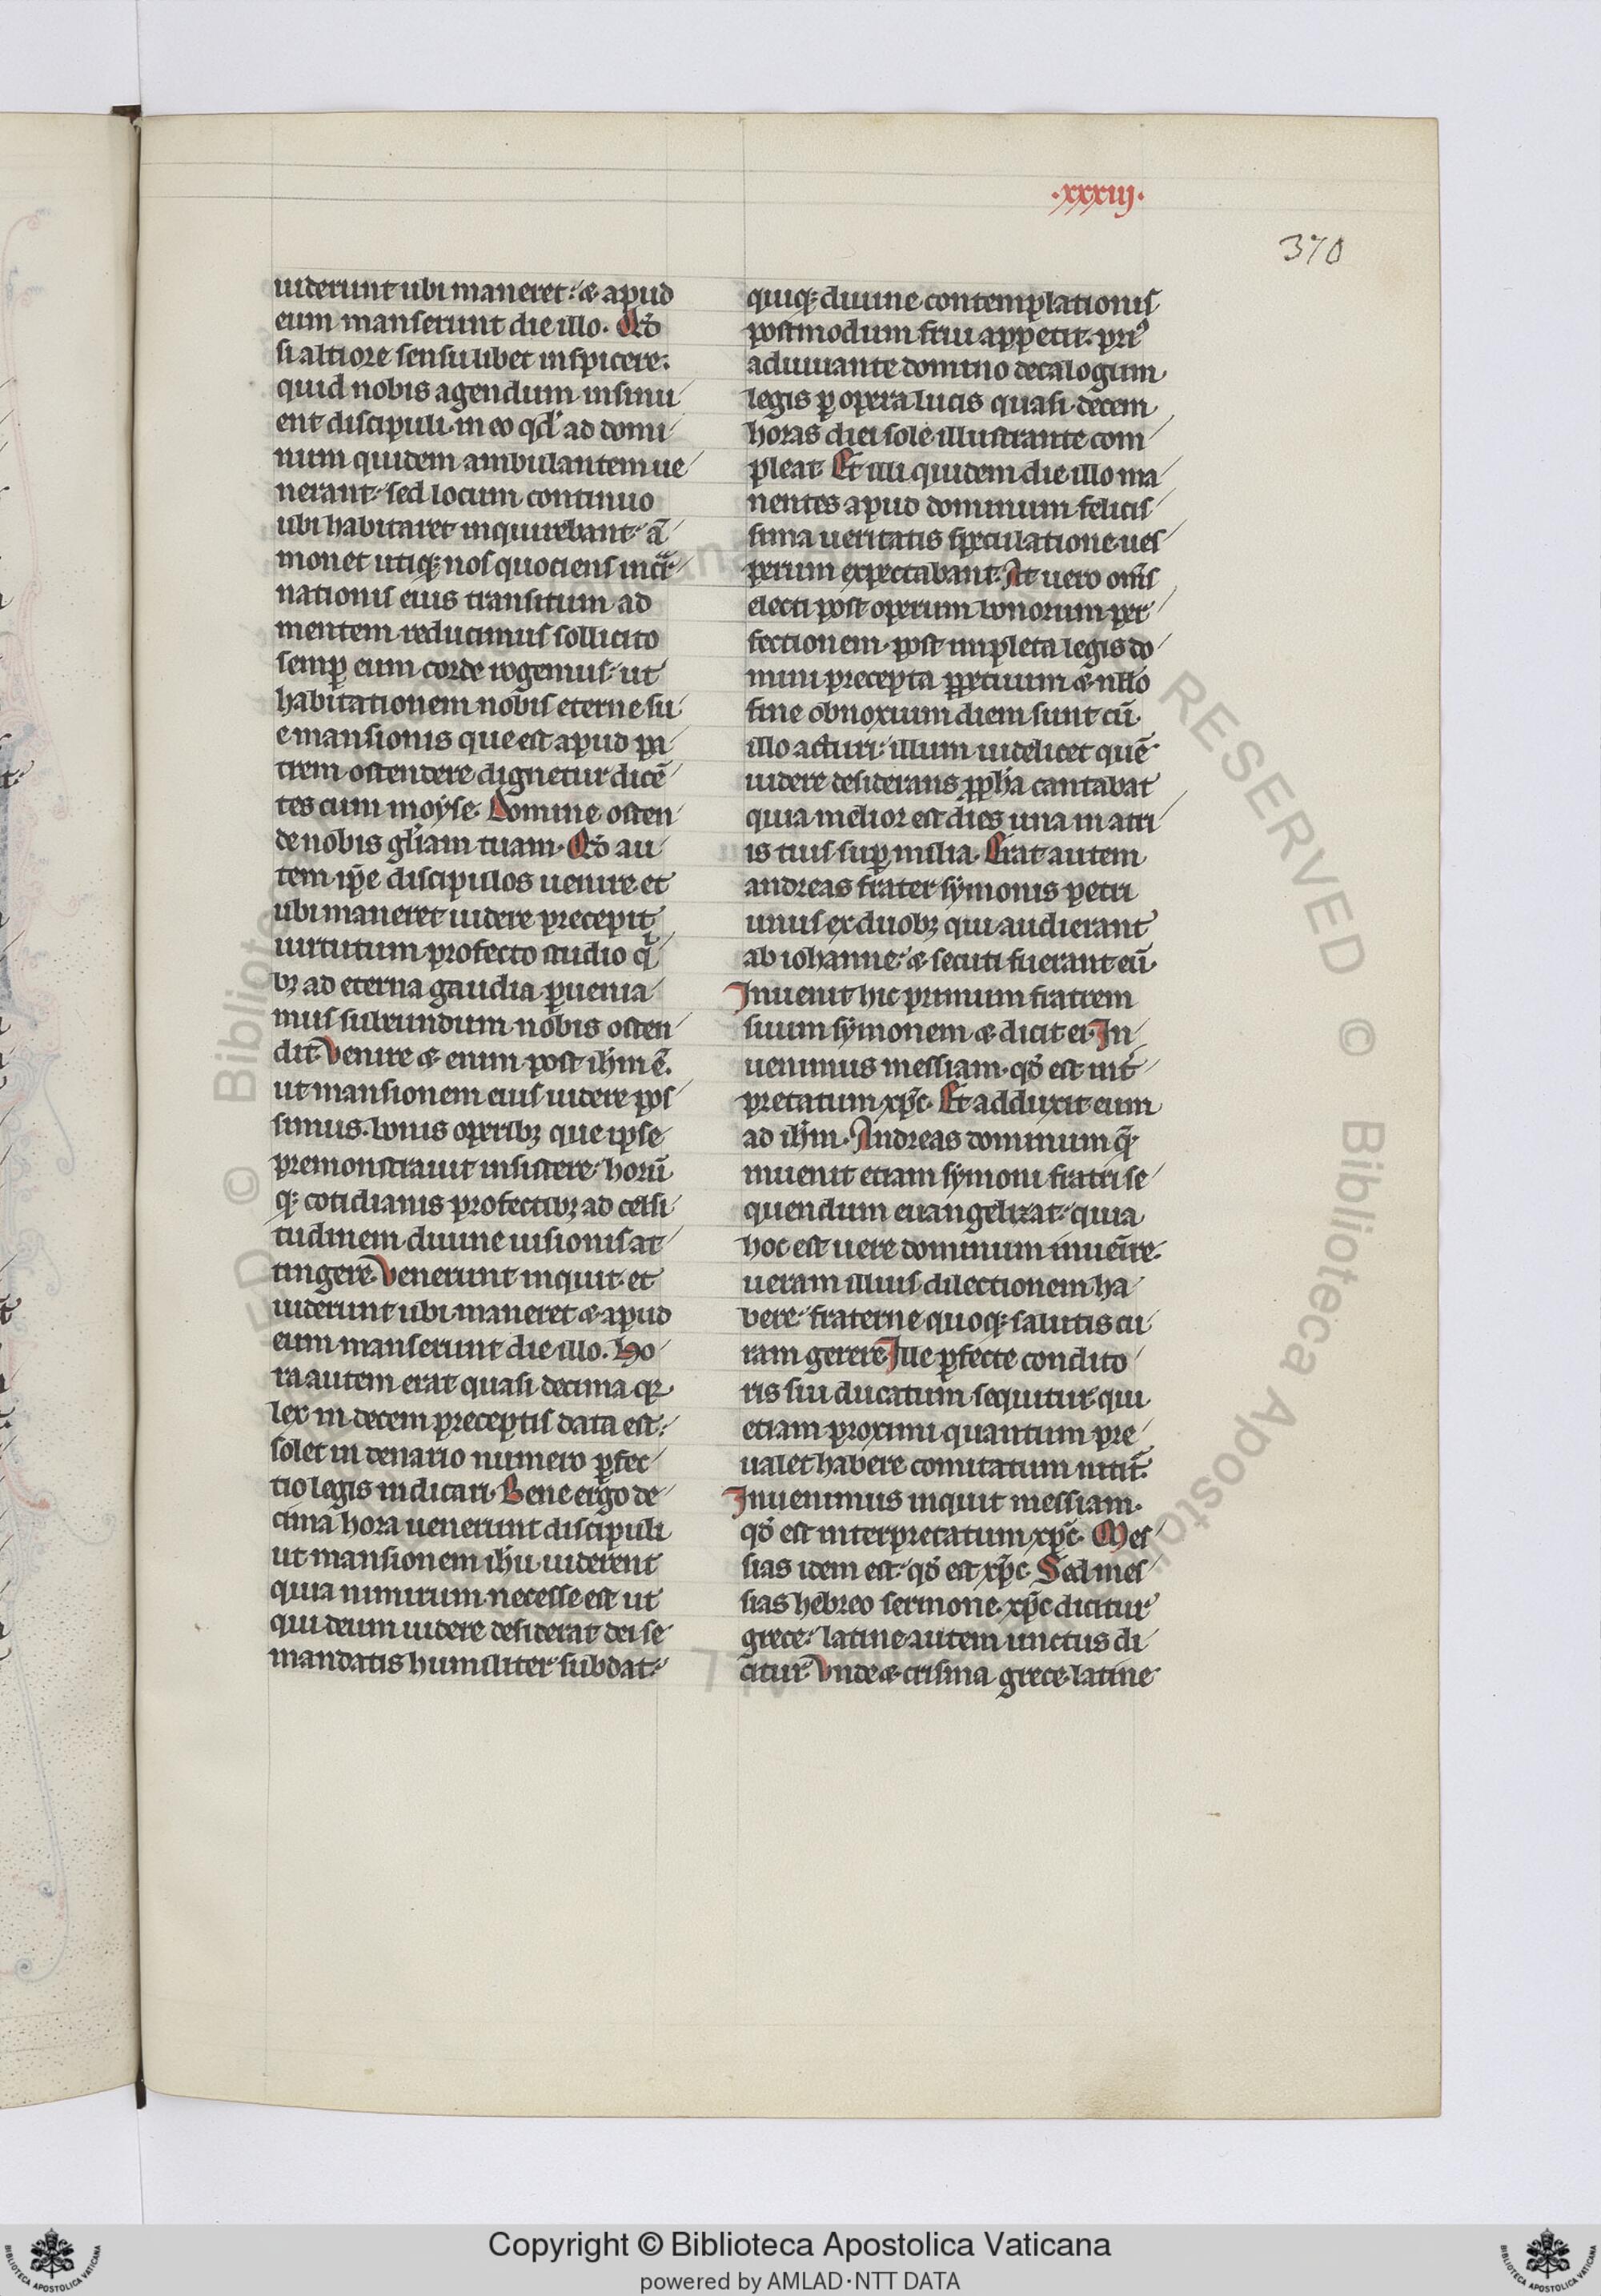 ·xxxiij·
370
uiderunt ubi maneret: & apud
eum manserunt die illo. Qđ
si altiore sensu libet inspicere:
quid nobis agendum insinu
ent discipuli in eo qđ ad domi
num quidem ambulantem ue
nerant: sed locum continuo
ubi habitaret inquirebant: a
monet utiq; nos quociens incar
nationis eius transitum ad
mentem reducimus sollicito
semp̱ eum corde rogemus: ut
habitationem nobis eterne su
e mansionis que est apud pa
trem ostendere dignetur dicē
tes cum moyse. Domine osten
de nobis gl̄iam tuam. Qđ au
tem ip̄e discipulos uenire et
ubi maneret uidere precepit
uirtutum profecto studio qⁱ
bȝ ad eterna gaudia p̱uenia
mus subeundum nobis osten
dit. Venire & enim post ih̄m ē.
ut mansionem eius uidere pos
simus. bonis operibȝ que ipse
premonstrauit insistere: horū
q; cotidianis profectibȝ ad celsi
tudinem diuine uisionis at
tingere. Venerunt inquit et
uiderunt ubi maneret & apud
eum manserunt die illo. Ho
ra autem erat quasi decima qr
lex in decem preceptis data est:
solet in denario numero p̱fec
tio legis indicari. Bene ergo de
cima hora uenerunt discipuli
ut mansionem ih̄u uiderent
quia nimirum necesse est ut
qui deum uidere desiderat dei se
mandatis humiliter subdat:
quiq; diuine contemplationis
postmodum frui appetit. priꝰ
adiuuante domino decalogum
legis p̱ opera lucis quasi decem
horas diei sole illustrante com
pleat. Et illi quidem die illo ma
nentes apud dominum felicis
sima ueritatis speculatione ues
perum expectabant. At uero om̄s
electi post operum bonorum per
fectionem. post impleta legis do
mini precepta pp̱etuum & nllo
fine obnoxium diem sunt cū
illo acturi: illum uidelicet quē
uidere desiderans ppħa cantabat
quia melior est dies una in atri
is tuis sup̱ milia. Erat autem
andreas frater symonis petri
unus ex duobȝ qui audierant
ab iohanne: & secuti fuerant eū.
Inuenit hic primum fratrem
suum symonem & dicit ei. In
uenimus messiam. qđ est int̄
pretatum xp̄c. Et adduxit eum
ad ih̄m. Andreas dominum q̄
inuenit etiam symoni fratri se
quendum euangelizat: quia
hoc est uere dominum inuenire.
ueram illius dilectionem ha
bere: fraterne quoq; salutis cu
ram gerere. Ille p̱fecte condito
ris sui ducatum sequitur qui
etiam proximi quantum pre
ualet habere comitatum nitit᷑.
Inuenimus inquit messiam.
qđ est interpretatum xp̄c. Mes
sias idem est: qđ est xp̄c. Sed mes
sias hebreo sermone. xp̄c dicitur
grece: latine autem unctus di
citur. Vnde & crisma grece latine
Copyright © Biblioteca Apostolica Vaticana
powered by AMLAD·NTT DATA